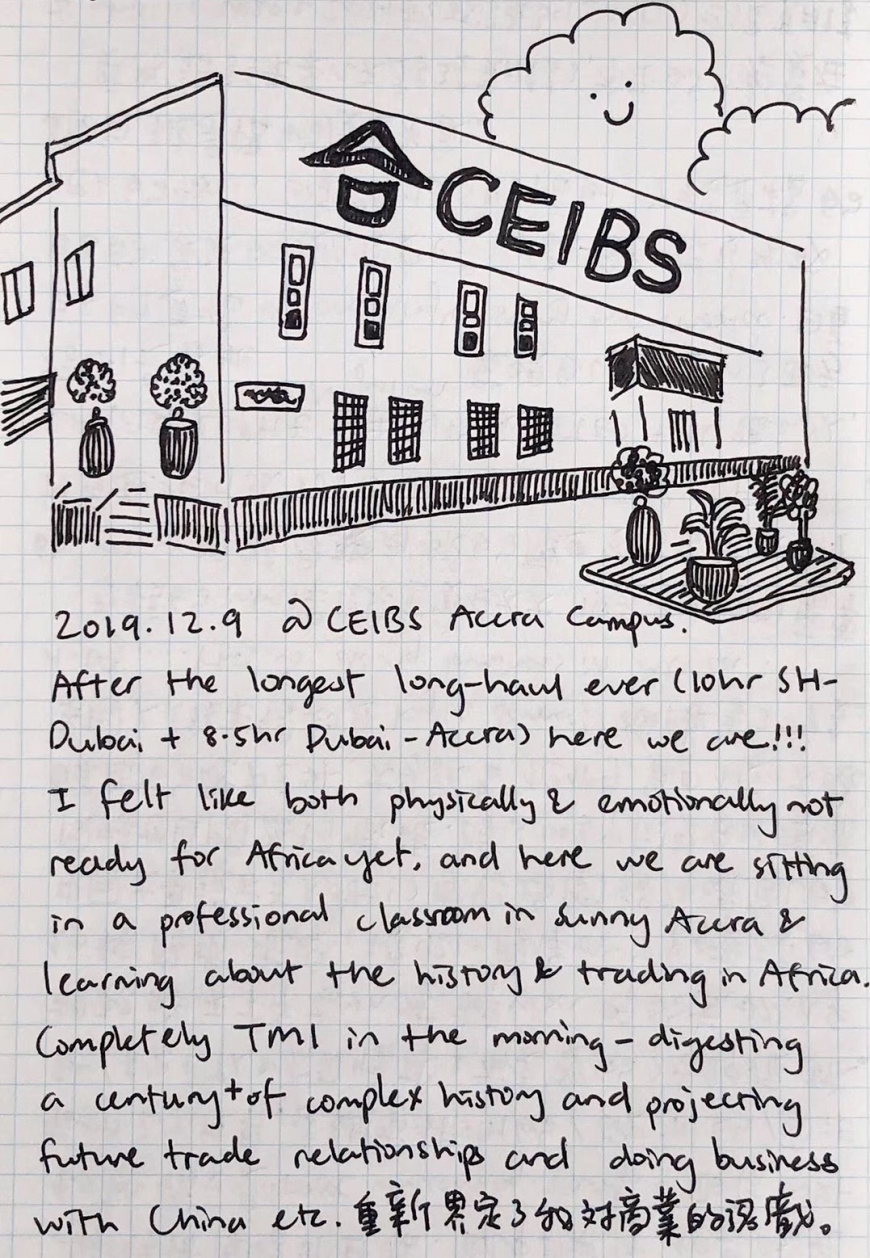 CEIBS
2019.12.9 @ CEIBS Accra Campus.
After the longest long-haul ever (10hr SH-
Dubai + 8.5hr Dubai-Accra) here we are!!!
I felt like both physically & emotionally not
ready for Africa yet, and here we are sitting
in a professional classroom in sunny Accra &
learning about the history & trading in Africa.
Completely TMI in the morning – digesting
a century+ of complex history and projecting
future trade relationships and doing business
with China etc. 重新界定了我对商業的認識。